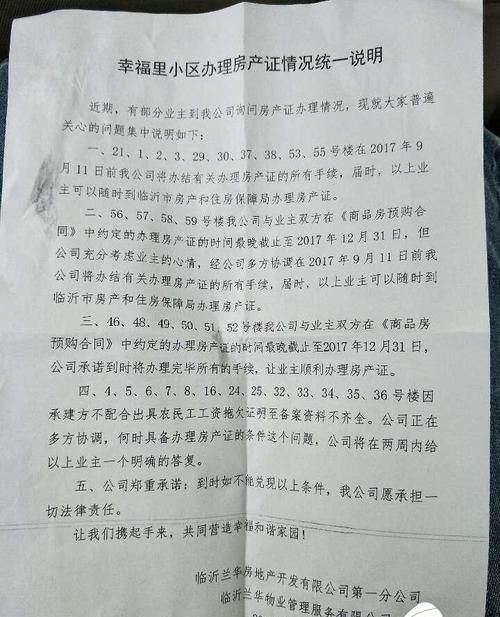 幸福里小区办理房产证情况统一说明
近期，有部分业主到我公司询问房产证办理情况，现就大家普遍
关心的问题集中说明如下：
一、21、1、2、3、29、30、37、38、53、55号楼在 2017 年 9
月 11 日前我公司将办结有关办理房产证的所有手续，届时，以上业
主可以随时到临沂市房产和住房保障局办理房产证。
二、56、57、58、59 号楼我公司与业主双方在《商品房预购合
同》中约定的办理房产证的时间最晚截止至 2017 年 12 月 31 日，但
公司充分考虑业主的心情，经公司多方协调在 2017 年 9 月 11 日前我
公司将办结有关办理房产证的所有手续，届时，以上业主可以随时到
临沂市房产和住房保障局办理房产证。
三、46、48、49、50、51、52 号楼我公司与业主双方在《商品房
预购合同》中约定的办理房产证的时间最晚截止至2017年12月31日，
公司承诺到时将办理完毕所有的手续，让业主顺利办理房产证。
四、4、5、6、7、8、16、24、25、32、33、34、35、36 号楼因
承建方不配合出具农民工工资拖欠证明至备案资料不齐全。公司正在
多方协调，何时具备办理房产证的条件这个问题，公司将在两周内给
以上业主一个明确的答复。
五、公司郑重承诺：到时如不能兑现以上条件，我公司愿承担一
切法律责任。
让我们携起手来，共同营造幸福和谐家园！
临沂兰华房地产开发有限公司第一分公司
临沂兰华物业管理服务有限公司